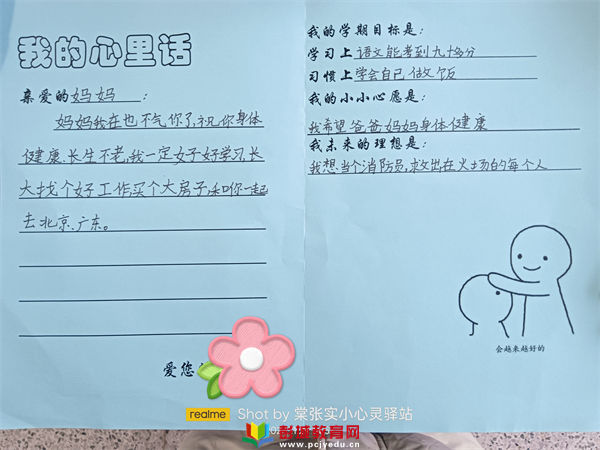 我的心里话
亲爱的妈妈：
妈妈我在也不气你了,祝你身体
健康.长生不老,我一定好好学习,长
大找个好工作买个大房子,和你一起
去北京、广东。
爱您
我的学期目标是：
学习上语文能考到九十多分
习惯上学会自己做饭
我的小小心愿是：
我希望爸爸妈妈身体健康
我未来的理想是：
我想当个消防员,救出在火场的每个人
会越来越好的
realme Shot by 棠张实小心灵驿站
彭城教育网
www.pcjyedu.cn